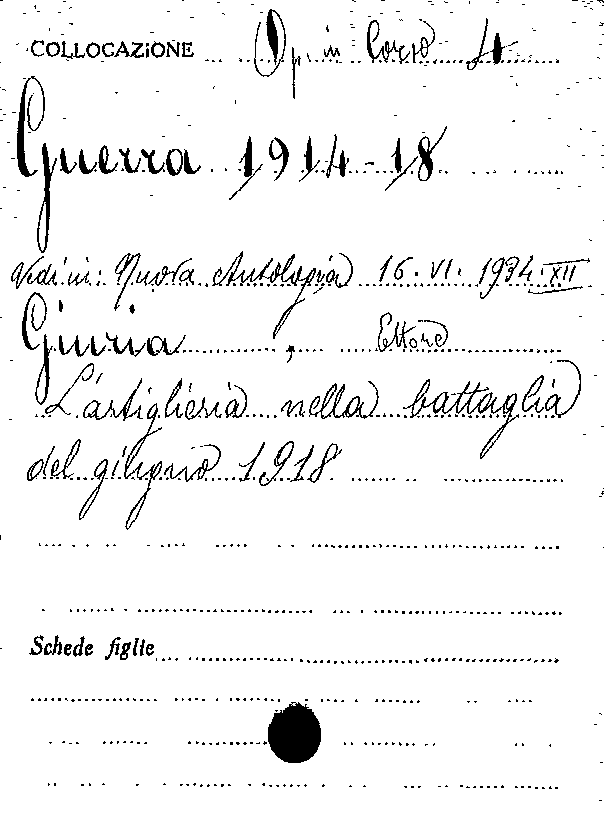 COLLOCAZIONE Op. in Corso
Guerra 1914-18
Vedi in: Nuova Antologia 16.VI.1934.XII
Giuria, Ettore
L'artiglieria nella battaglia
del giugno 1918
Schede figlie